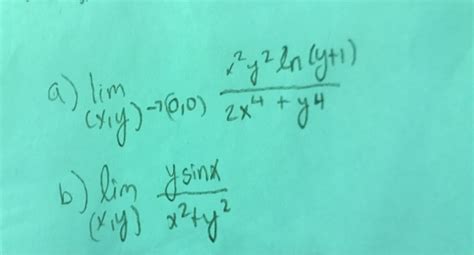 a) lim (x,y)→(0,0) x²y² ln(y+1) / 2x⁴ + y⁴
b) lim (x,y) y sinx / x²+y²